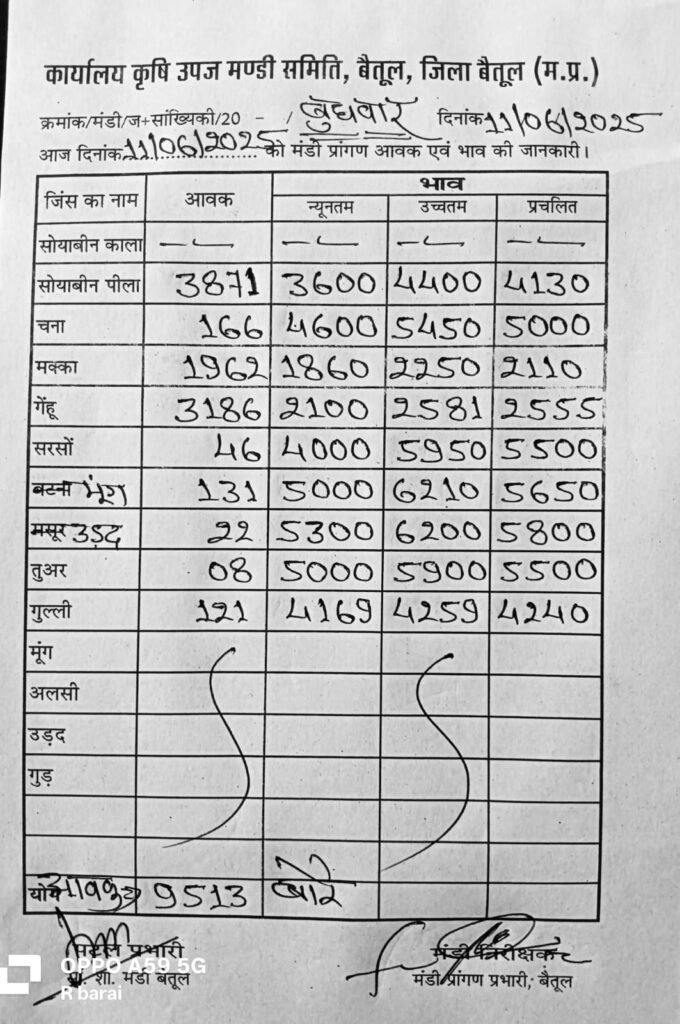 कार्यालय कृषि उपज मण्डी समिति, बैतूल, जिला बैतूल (म.प्र.)
क्रमांक/मंडी/ज+सांख्यिकी/20 - / बुधवार दिनांक 11/06/2025
आज दिनांक 11/06/2025 को मंडी प्रांगण आवक एवं भाव की जानकारी।
जिंस का नाम आवक भाव
न्यूनतम उच्चतम प्रचलित
सोयाबीन काला — — — —
सोयाबीन पीला 3871 3600 4400 4130
चना 166 4600 5450 5000
मक्का 1962 1860 2250 2110
गेंहू 3186 2100 2581 2555
सरसों 46 4000 5950 5500
बटना मूंग 131 5000 6210 5650
मसूर उड़द 22 5300 6200 5800
तुअर 08 5000 5900 5500
गुल्ली 121 4169 4259 4240
मूंग
अलसी
उड़द
गुड़
योग आवक 9513 बोरे
प्रभारी मंडी निरीक्षक
शा. मंडी बैतूल मंडी प्रांगण प्रभारी, बैतूल
OPPO A59 5G
R barai